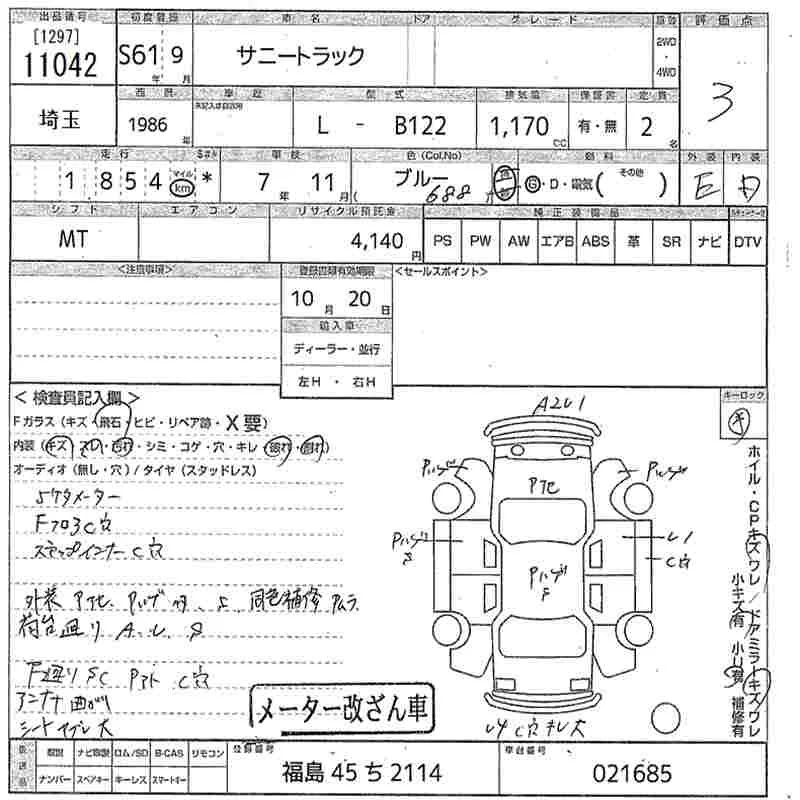 出品番号 初度登録 車名 ドア グレード 駆動 評価点
[1297]
11042 S61 9 サニートラック 2WD・4WD 3
年 月
西暦 車歴 型式 排気量 保証書 定員
未記入は自家用
埼玉 1986年 L - B122 1,170cc 有・無 2名
走行 車検 色(Col.No) 燃料 外装 内装
1854 マイル km * 7年 11月 ブルー (688) G・D・電気( その他 ) E D
シフト エアコン リサイクル預託金 純正装備品
MT 4,140円 PS PW AW エアB ABS 革 SR ナビ DTV
<注意事項> 登録書類有効期限 <セールスポイント>
10月 20日
輸入車
ディーラー・並行
左H ・ 右H
<検査員記入欄> キーロック
キ
Fガラス(キズ・飛石・ヒビ・リペア跡・X要)
内装(キズ・スレ・汚れ・シミ・コゲ・穴・キレ・破れ・割れ)
オーディオ(無し・穴)/タイヤ(スタッドレス)
5ケタメーター
FフロアC穴
ステップインナーC穴
外装 Pアセ、Pハゲ 同色補修 Pムラ
荷台廻り A、U、S
F廻りSC C穴
アンテナ曲がり
シートヤブレ大
A2U1
Pアセ
Pハゲ Pハゲ
Pハゲ S U1
C穴
Pハゲ S
U4 C穴 キレ大
ホイル・CPキズワレ/ドアミラーキズワレ
小キズ有 小U有 補修有
メーター改ざん車
取説 ナビ取説 ロム/SD B-CAS リモコン 登録番号 車台番号
ナンバー スペアキー キーレス スマートキー 福島 45 ち 2114 021685